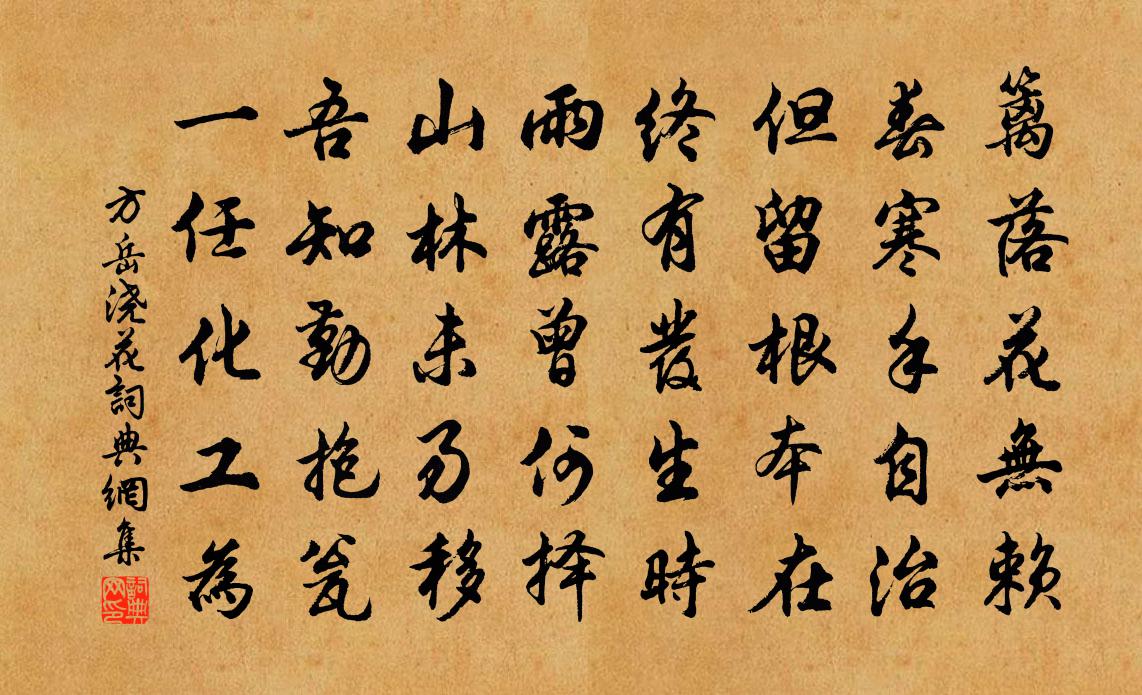 籬落花無賴
春寒手自治
但留根本在
終有發生時
雨露曾何擇
山林未易移
吾知勤抱瓮
一任化工為
方岳浇花詞典網集
詞典网印